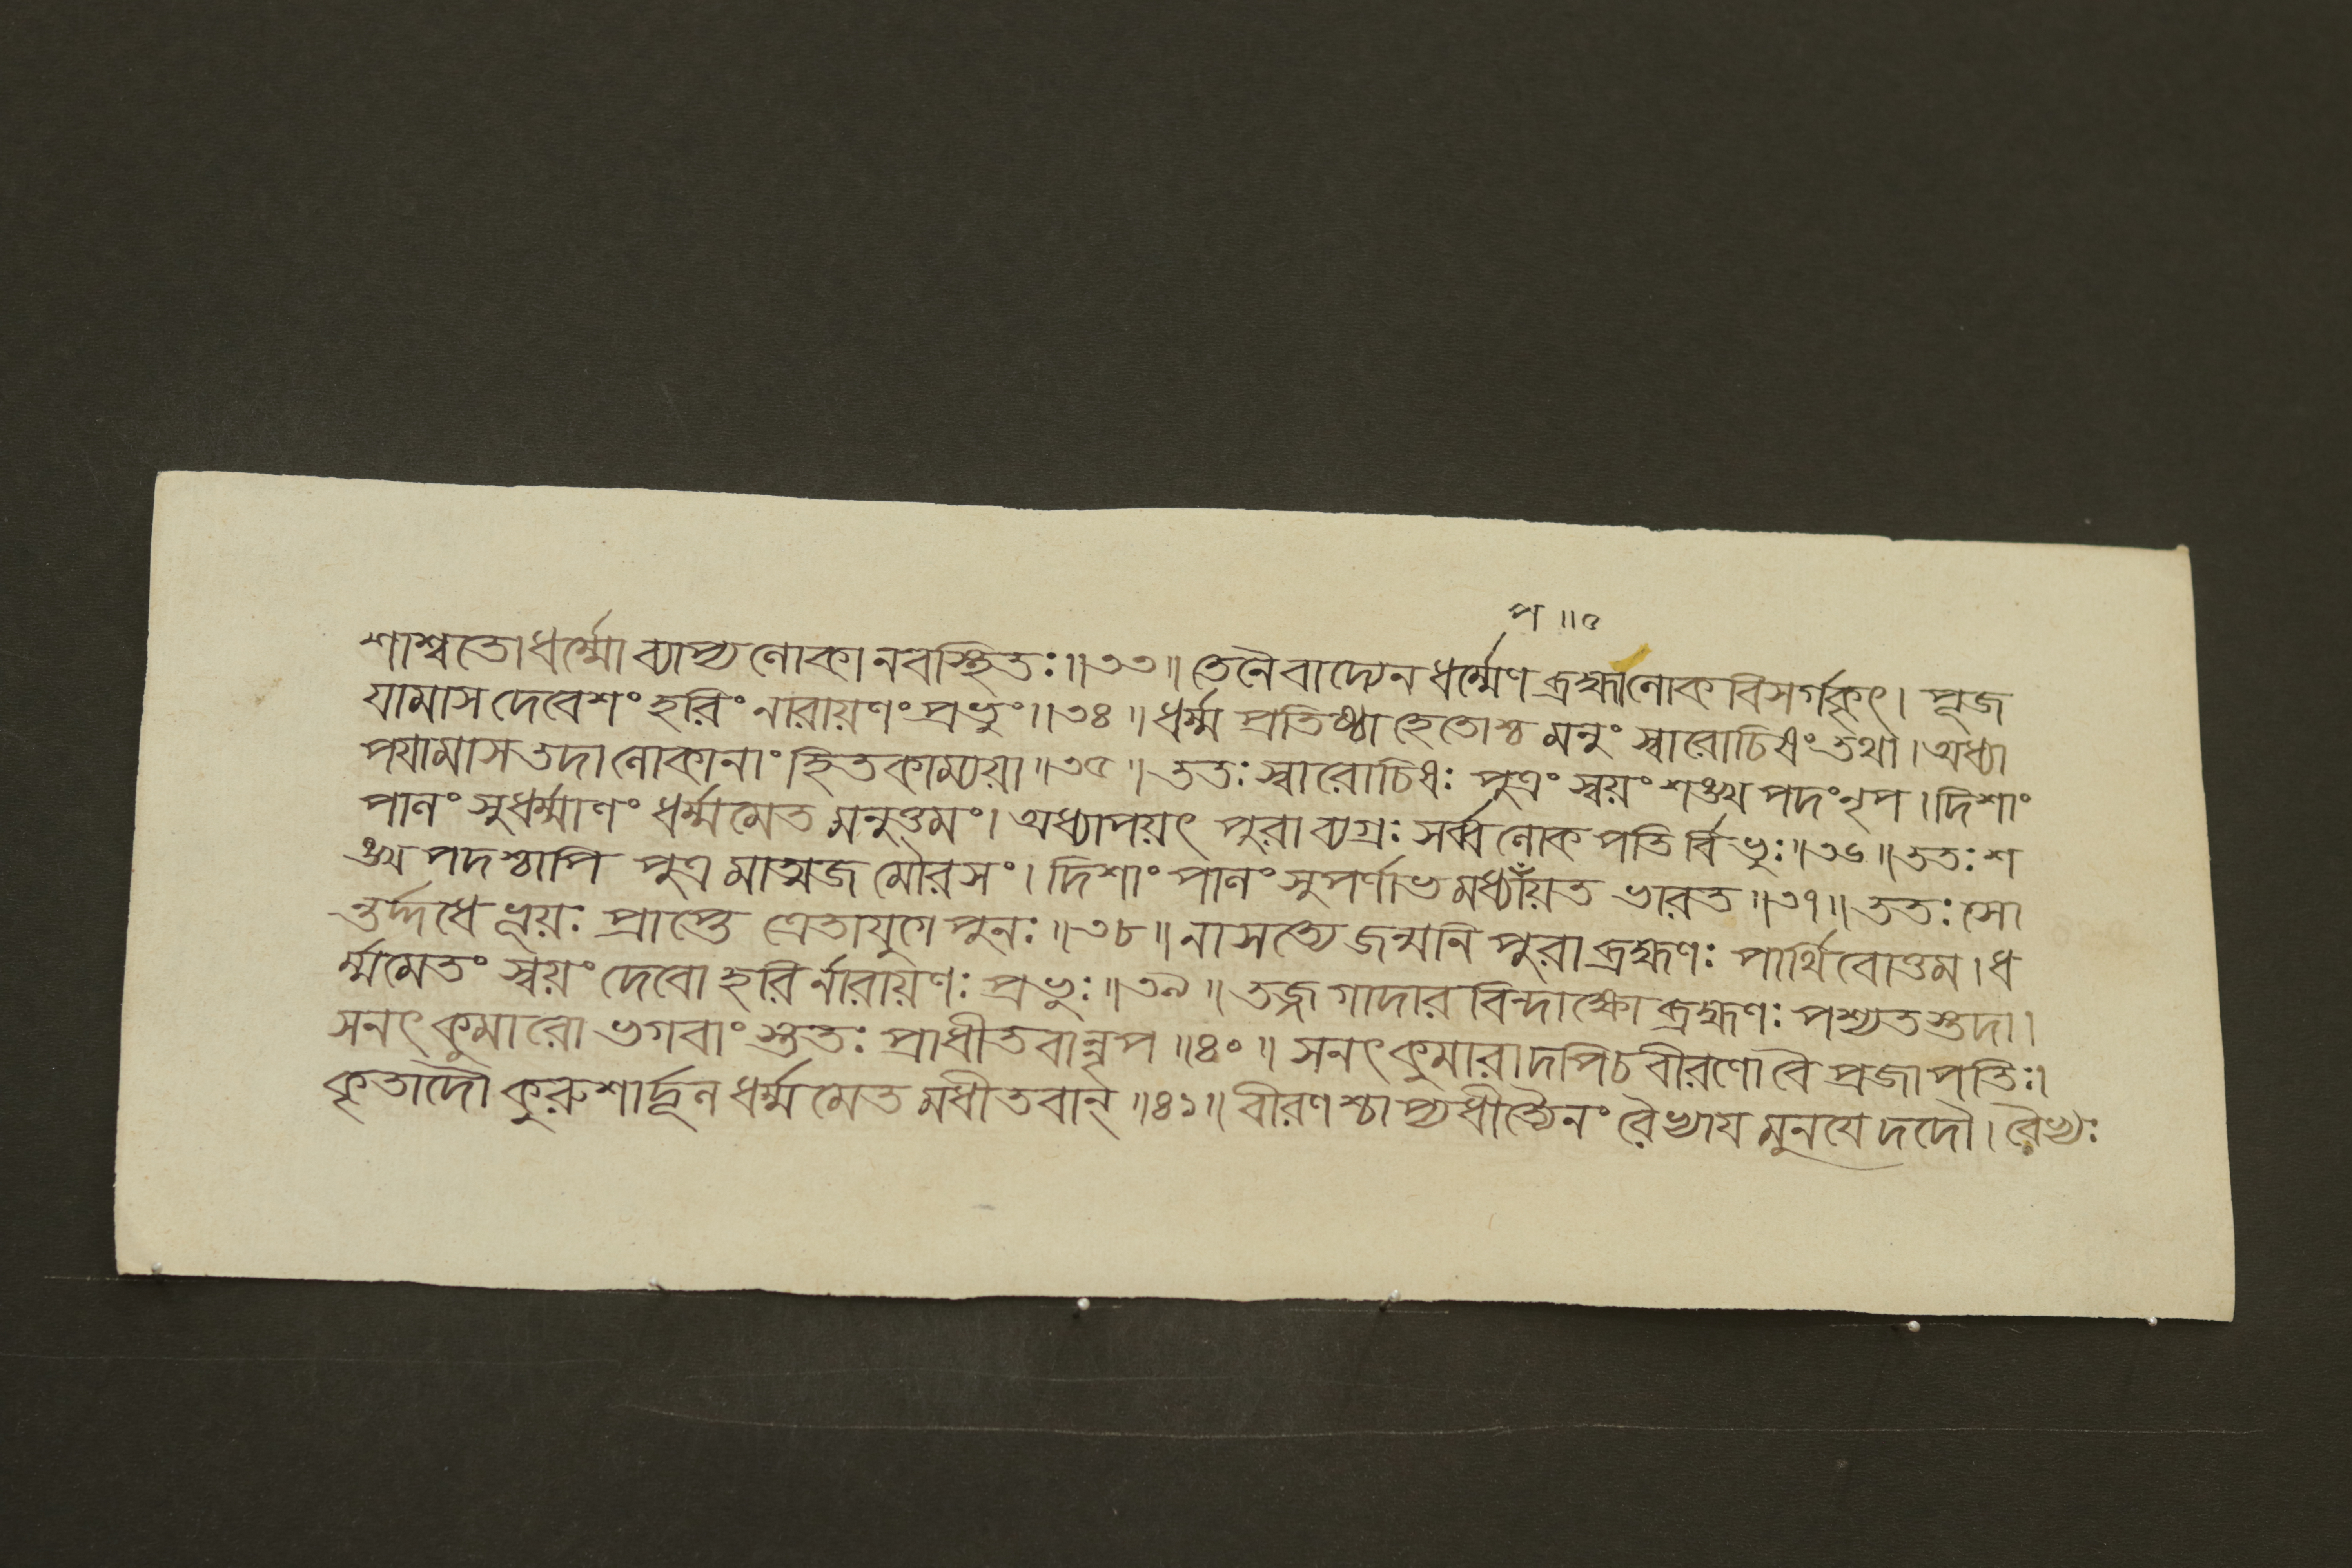 প ॥ ৫
শাশ্বতোধর্ম্মোব্যাপ্যলোকানবস্থিতঃ॥৩৩॥তেনৈবাদ্যেনধর্ম্মেণব্রহ্মালোকবিসর্গকৃৎ। পূজ
যামাসদেবেশংহরিংনারায়ণংপ্রভুং॥৩৪॥ধর্ম্মপ্রতিষ্ঠাহেতোশ্চমনুংস্বারোচিষংতথা।অধ্যা
পযামাসতদালোকানাংহিতকাম্যয়া॥৩৫॥ততঃস্বারোচিষঃ পুত্রংস্বয়ংশঙ্খপদংনৃপ।দিশাং
পালংসুধর্ম্মাণংধর্ম্মমেতমনুত্তমং।অধ্যাপয়ৎ পুরাব্যগ্রঃসর্ব্বলোকপতির্বিভুঃ॥৩৬॥ততঃশ
ঙ্খপদশ্চাপি পুত্রমাত্মজমৌরসং। দিশাংপালংসুপর্ণাভমধ্যাঁয়তভারত॥৩৭॥ততঃসো
ন্তর্দ্দধেভূয়ঃ প্রাপ্তেত্রেতাযুগেপুনঃ॥৩৮॥নাসত্যেজন্মনিপুরাব্রহ্মণঃপার্থিবোত্তম।ধ
র্ম্মমেতংস্বয়ংদেবোহরির্নারায়ণঃ প্রভুঃ॥৩৯॥তজ্জগাদারবিন্দাক্ষোব্রহ্মণঃপশ্যতস্তদা।
সনৎকুমারোভগবাংস্ততঃ প্রাধীতবান্নৃপ॥৪০॥সনৎকুমারাদপিচবীরণোবৈপ্রজাপতিঃ।
কৃতাদৌকুরুশার্দ্দূলধর্ম্মমেতমধীতবান্॥৪১॥বীরণশ্চাপ্যধীত্যৈনংরৈভ্যাযমুনযেদদৌ।রৈভ্যঃ